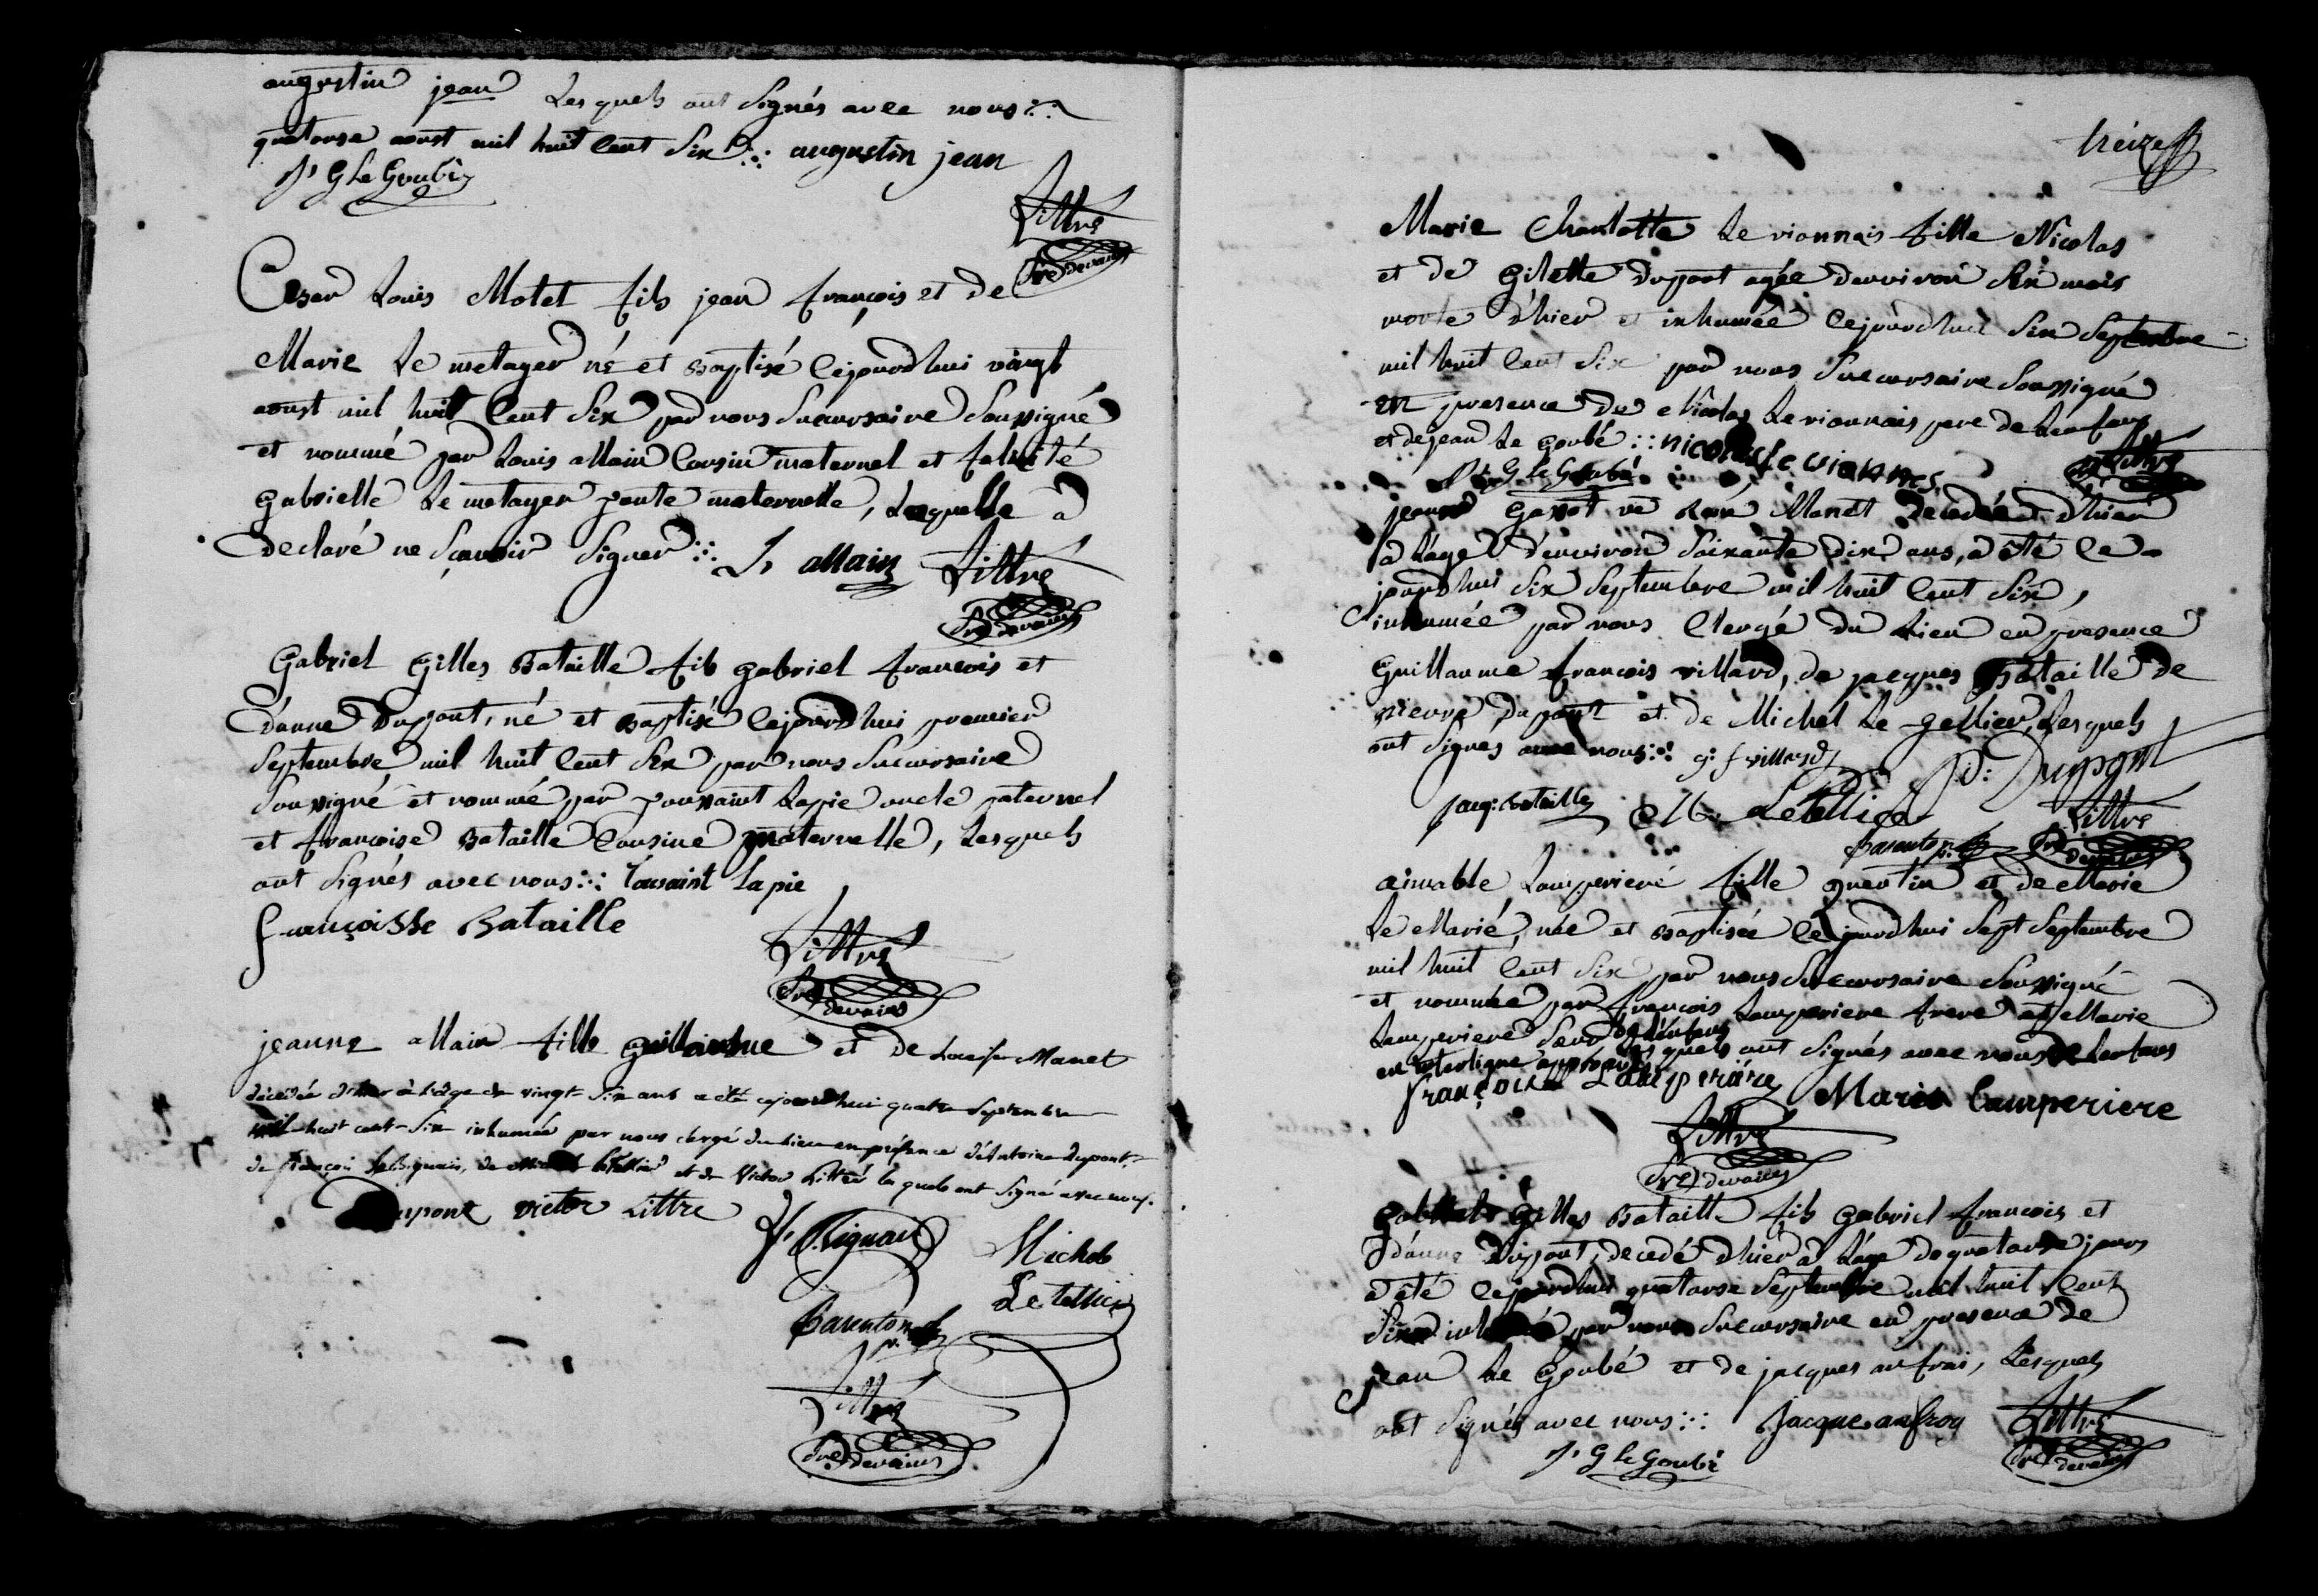 augustin jean Lesquels ont signés avec nous
quatorse aoust mil huit cent six augustin jean
J. G Le Goubé
Littre
Cesar Louis Motet fils jean françois et de
Marie Le metayer né et baptisé cejourdhui vingt
aoust mil huit cent six par nous succursaire soussigné
et nommé par Louis allain cousin maternel et felicité
gabrielle Le metayer tante maternelle, laquelle a
declaré ne sçavoir signer L. allain Littre
dre devains
Gabriel gilles Bataille fils gabriel françois et
d'anne Dupont, né et baptisé cejourdhui premier
septembre mil huit cent six par nous succursaire
soussigné et nommé par toussaint Lapie oncle paternel
et françoise Bataille cousine maternelle, Lesquels
ont signés avec nous Tousaint Lapie
françoisse Bataille
Littre
dre devains
jeanne allain fille guillaume et de Louise Manet
décédée d'hier à l'age de vingt six ans a été cejourdhui quatre septembre
mil huit cent six inhumée par nous clergé du lieu en présence d'Antoine dupont,
de françois de michel letellier et de Victor Littré lesquels ont signé avec nous.
Dupont victor Littre
Michel
Letellier
Barenton
Littre
dre devains
treize
Marie Charlotte Le vionnais fille Nicolas
et de gilette Dupont agée d'environ six mois
morte d'hier et inhumée cejourdhui six septembre
mil huit cent six par nous succursaire soussigné
en presence de Nicolas Le vionnais pere de Lenfant
et de jean Le goubé nicolas Le vionnes
J. G Le Goubé Littre
jeanne ve Manet decedée d'hier
a l'age d'environ soixante dix ans, a été ce
jourdhui six septembre mil huit cent six,
inhumée par nous clergé du Lieu en presence
guillaume françois villard, de jacques Bataille de
pierre dupont et de Michel Le tellier, Lesquels
ont signés avec nous g. f villard P: Dupont
jacq: bataille M. Letellier Littre
Barenton dre devains
aimable Lamperiere fille quentin et de Marie
Le Marié, née et baptisée cejourdhui sept septembre
mil huit cent six par nous succursaire soussigné
et nommée par françois Lamperiere frere et Marie
Lamperiere soeur de l'enfant
en interligne approuvé lesquels ont signés avec nous de Lenfant
françois Lamperiere Marie Lamperiere
Littre
dre devains
gabriel gilles Bataille fils gabriel françois et
d'anne Dupont, decedé d'hier a l'age de quatorse jours
a été cejourdhui quatorse septembre mil huit cent
six inhumé par nous succursaire en presence de
jean Le goubé et de jacques anfrai, Lesquels
ont signés avec nous Jacque anfroy Littre
J. G Le Goubé dre devains